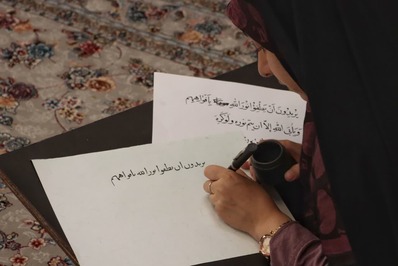 يريدون أن يطفؤا نور الله بأفواههم
ويأبى الله إلا أن يتم نوره ولو كره
يريدون ان يطفوا نور الله بافواههم